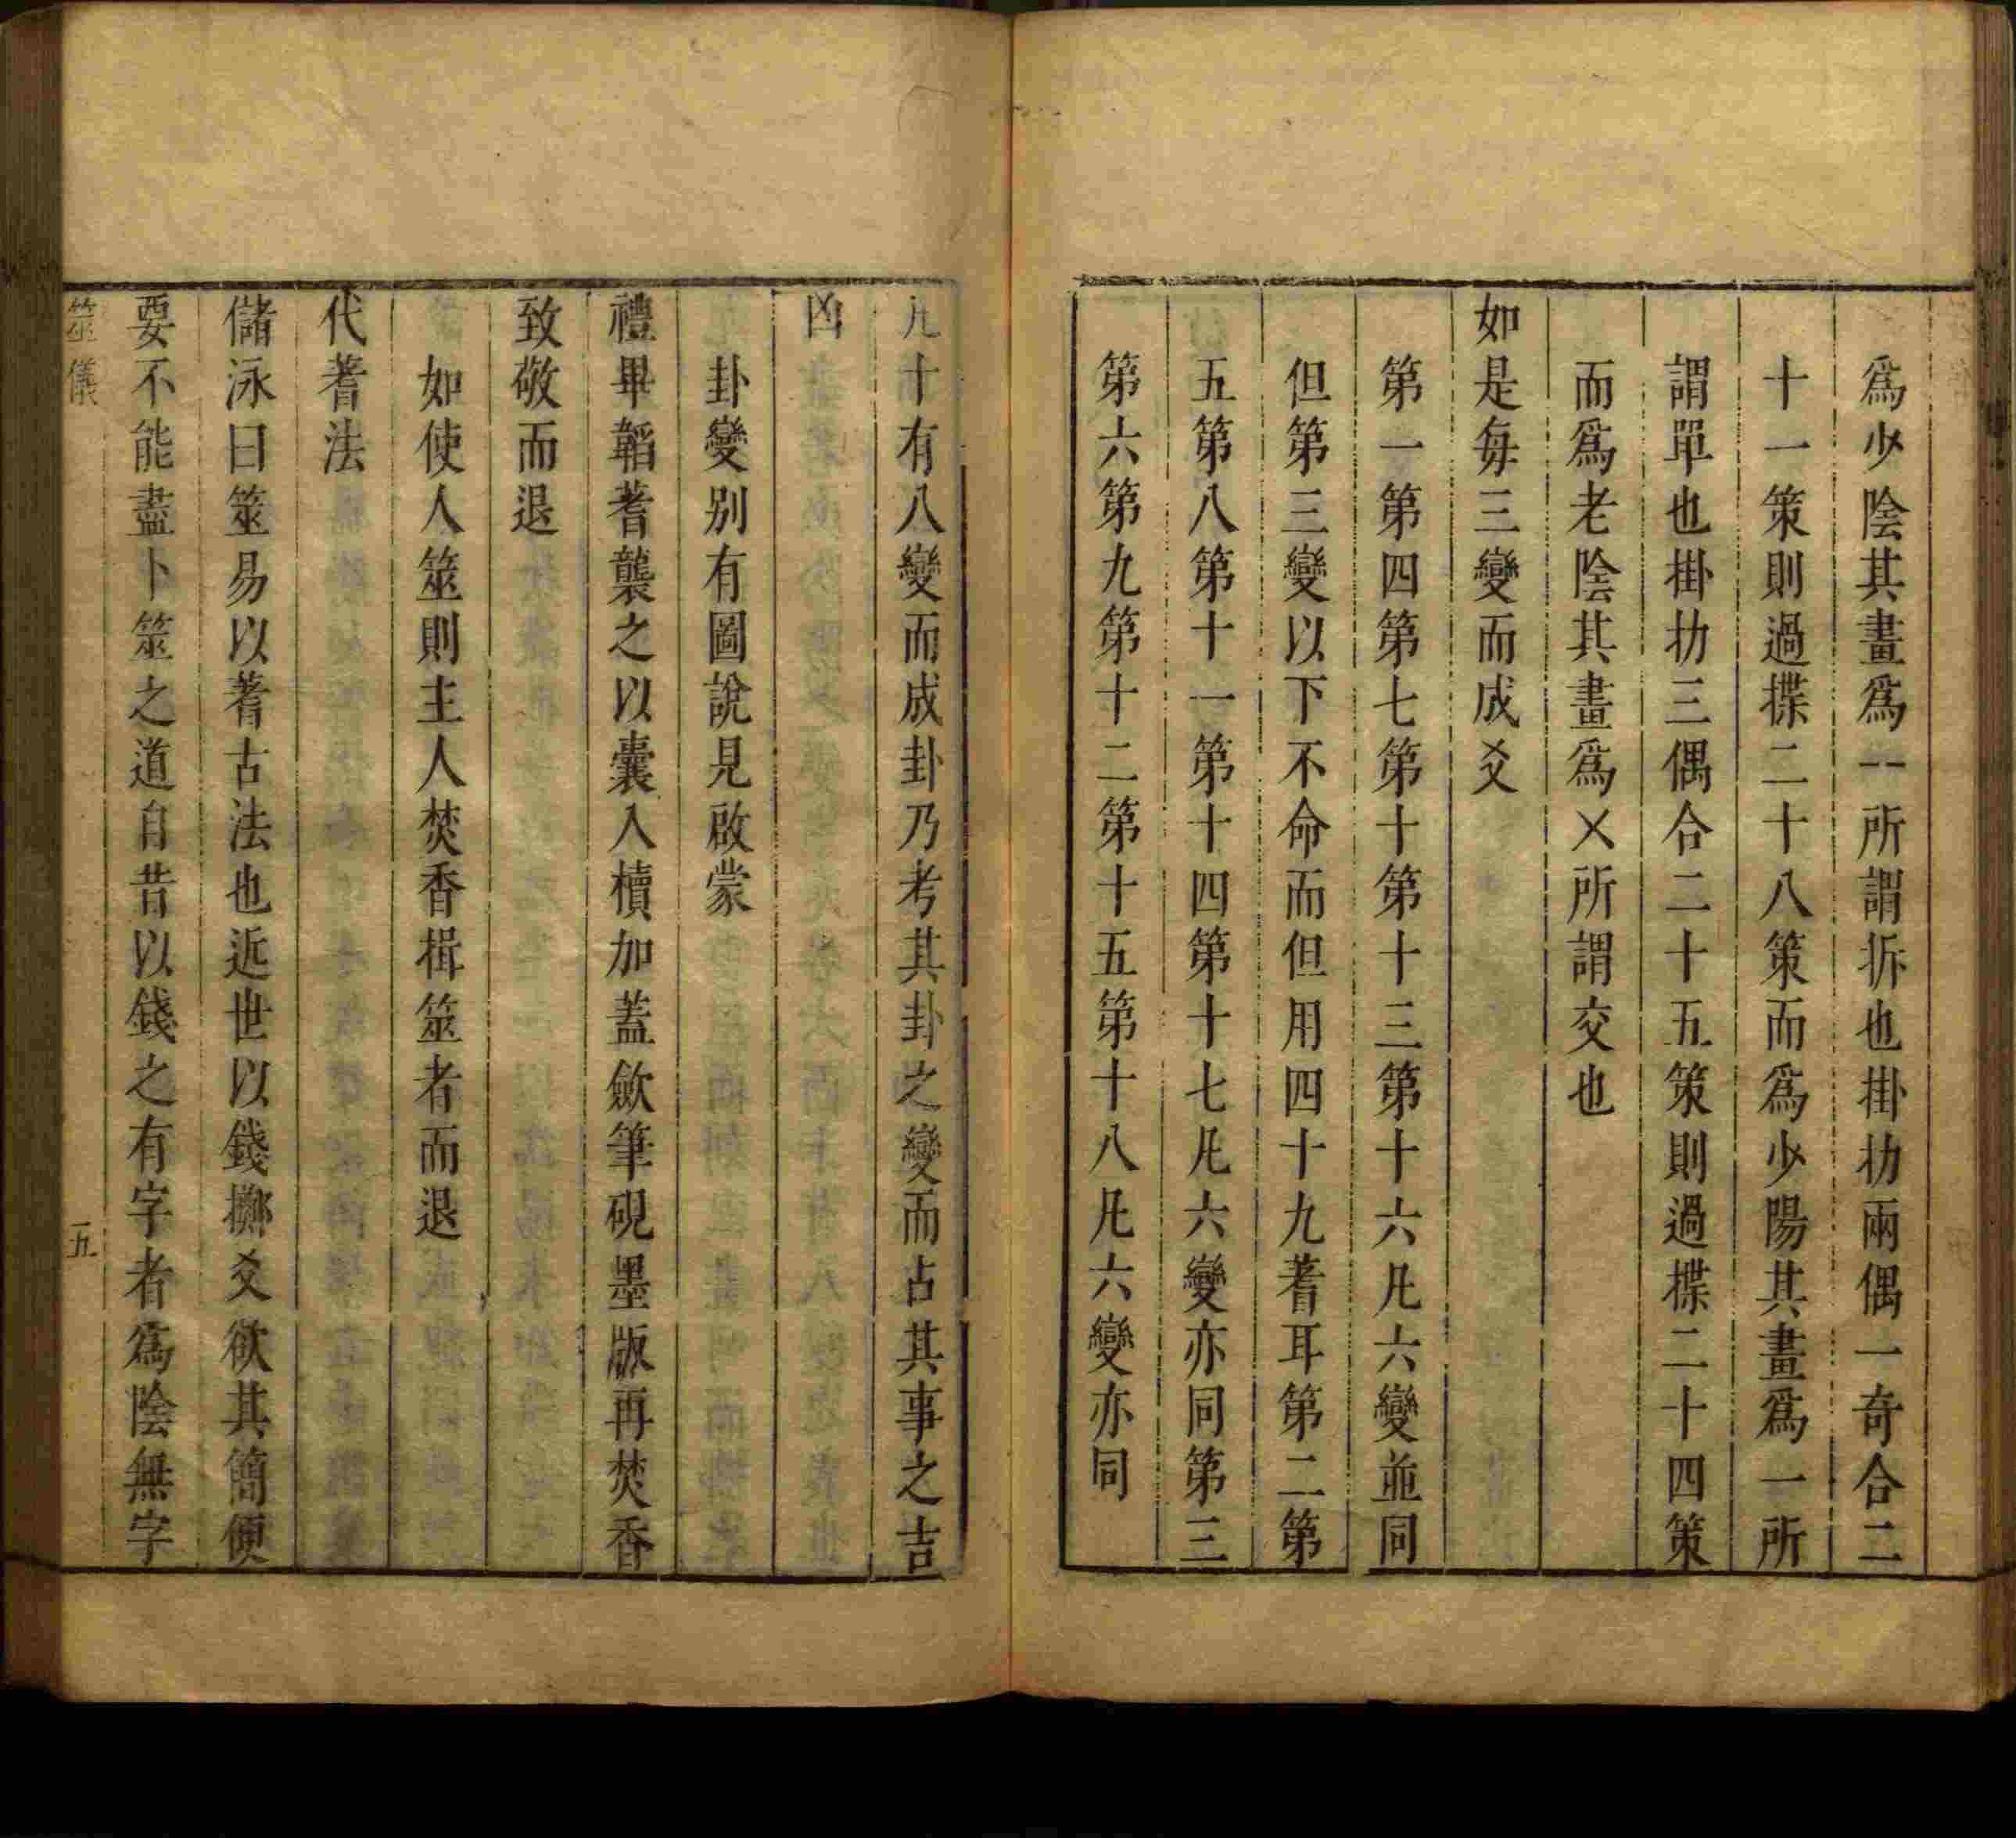 爲少陰其畫爲--所謂拆也掛扐兩偶一奇合二
十一策則過揲二十八策而爲少陽其畫爲一所
謂單也掛扐三偶合二十五策則過揲二十四策
而爲老陰其畫爲㐅所謂交也
如是每三變而成爻
第一第四第七第十第十三第十六凡六變並同
但第三變以下不命而但用四十九蓍耳第二第
五第八第十一第十四第十七凡六變亦同第三
第六第九第十二第十五第十八凡六變亦同
凡十有八變而成卦乃考其卦之變而占其事之吉
凶
卦變別有圖說見啟蒙
禮畢韜蓍襲之以囊入櫝加蓋歛筆硯墨版再焚香
致敬而退
如使人筮則主人焚香揖筮者而退
代蓍法
儲泳曰筮易以蓍古法也近世以錢擲爻欲其簡便
要不能盡卜筮之道自昔以錢之有字者爲陰無字
筮儀
五